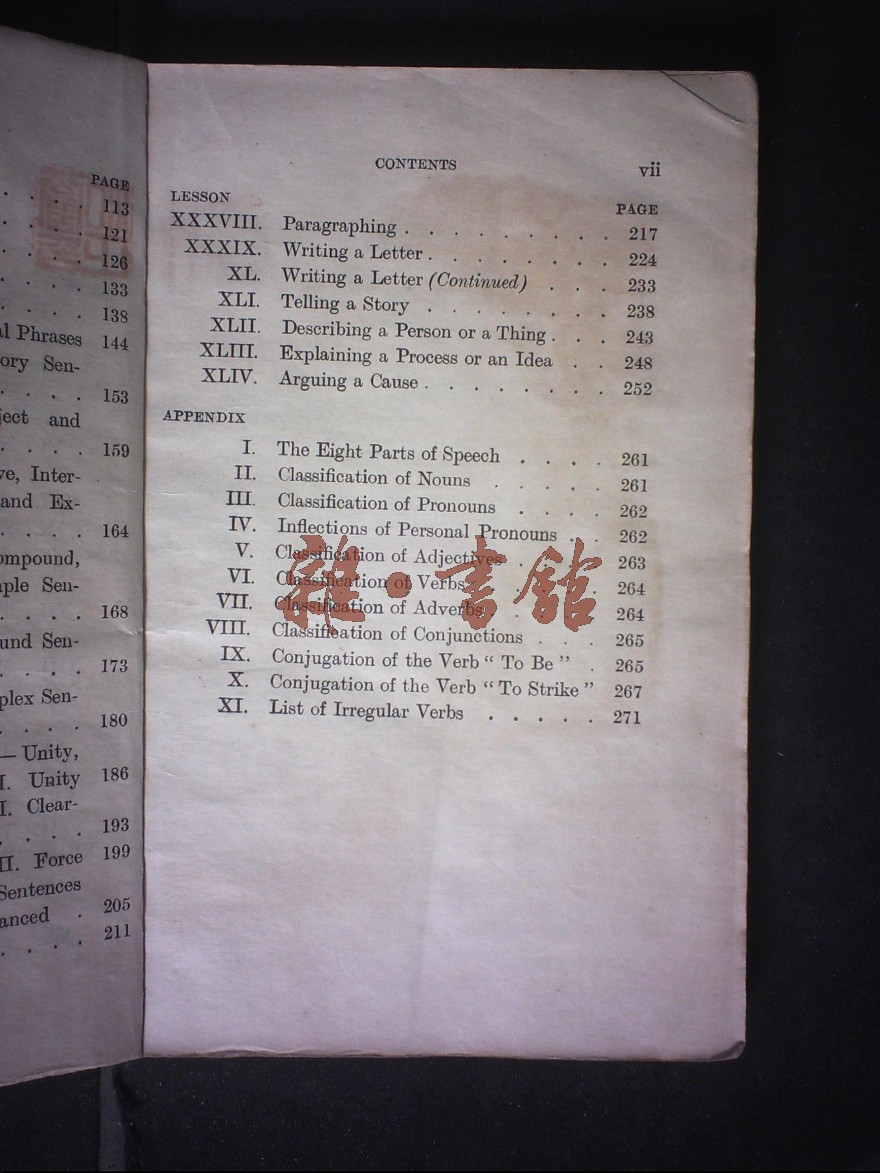 PAGE
. . . . 113
. . . . 121
. . . . 126
. . . . 133
. . . . 138
Phrases 144
Sen-
. . . . 153
and
. . . . 159
Inter-
and Ex-
. . . . 164
Sen-
. . . . 168
Sen-
. . . . 173
Sen-
. . . . 180
— Unity,
Unity 186
Clear-
. . . . 193
II. Force 199
Sentences
. 205
. . . . 211
CONTENTS vii
LESSON PAGE
XXXVIII. Paragraphing . . . . . . . . 217
XXXIX. Writing a Letter . . . . . . . . 224
XL. Writing a Letter (Continued) . . . 233
XLI. Telling a Story . . . . . . . . 238
XLII. Describing a Person or a Thing . . . 243
XLIII. Explaining a Process or an Idea . . 248
XLIV. Arguing a Cause . . . . . . . . 252
APPENDIX
I. The Eight Parts of Speech . . . . 261
II. Classification of Nouns . . . . . 261
III. Classification of Pronouns . . . . 262
IV. Inflections of Personal Pronouns . . 262
V. Classification of Adjectives . . . . 263
VI. Classification of Verbs . . . . . 264
VII. Classification of Adverbs . . . . 264
VIII. Classification of Conjunctions . . . 265
IX. Conjugation of the Verb “ To Be ” . 265
X. Conjugation of the Verb “ To Strike ” 267
XI. List of Irregular Verbs . . . . . 271
雜·書館